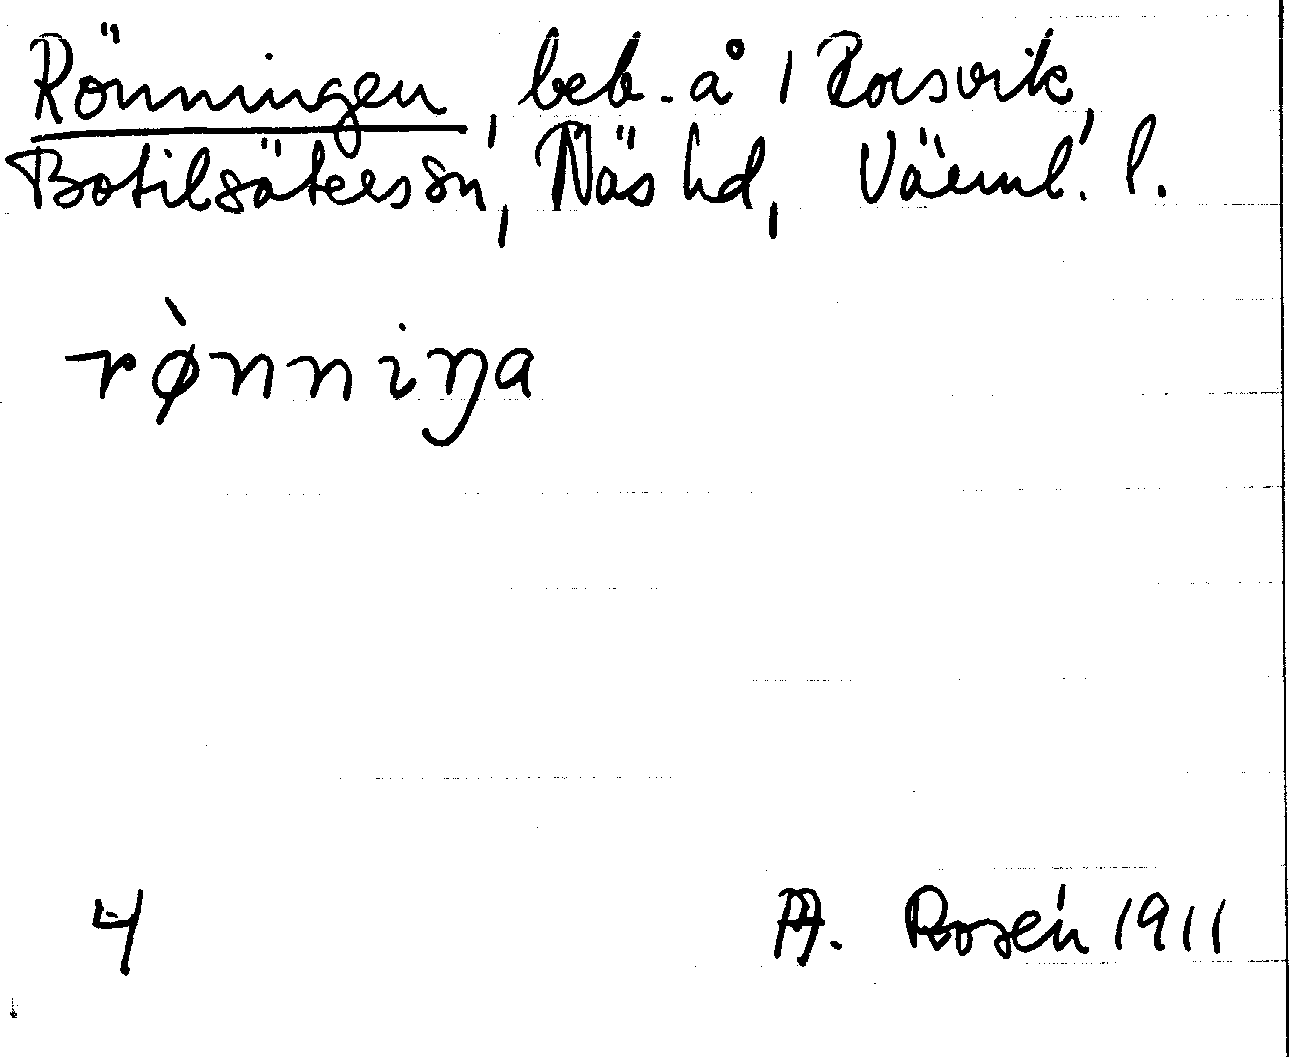 Rönningen, beb. å 1 Rorsvik,
Botilsäters sn, Näs hd, Värml. l.
rø̀nniŋa
4
A. Rosén 1911